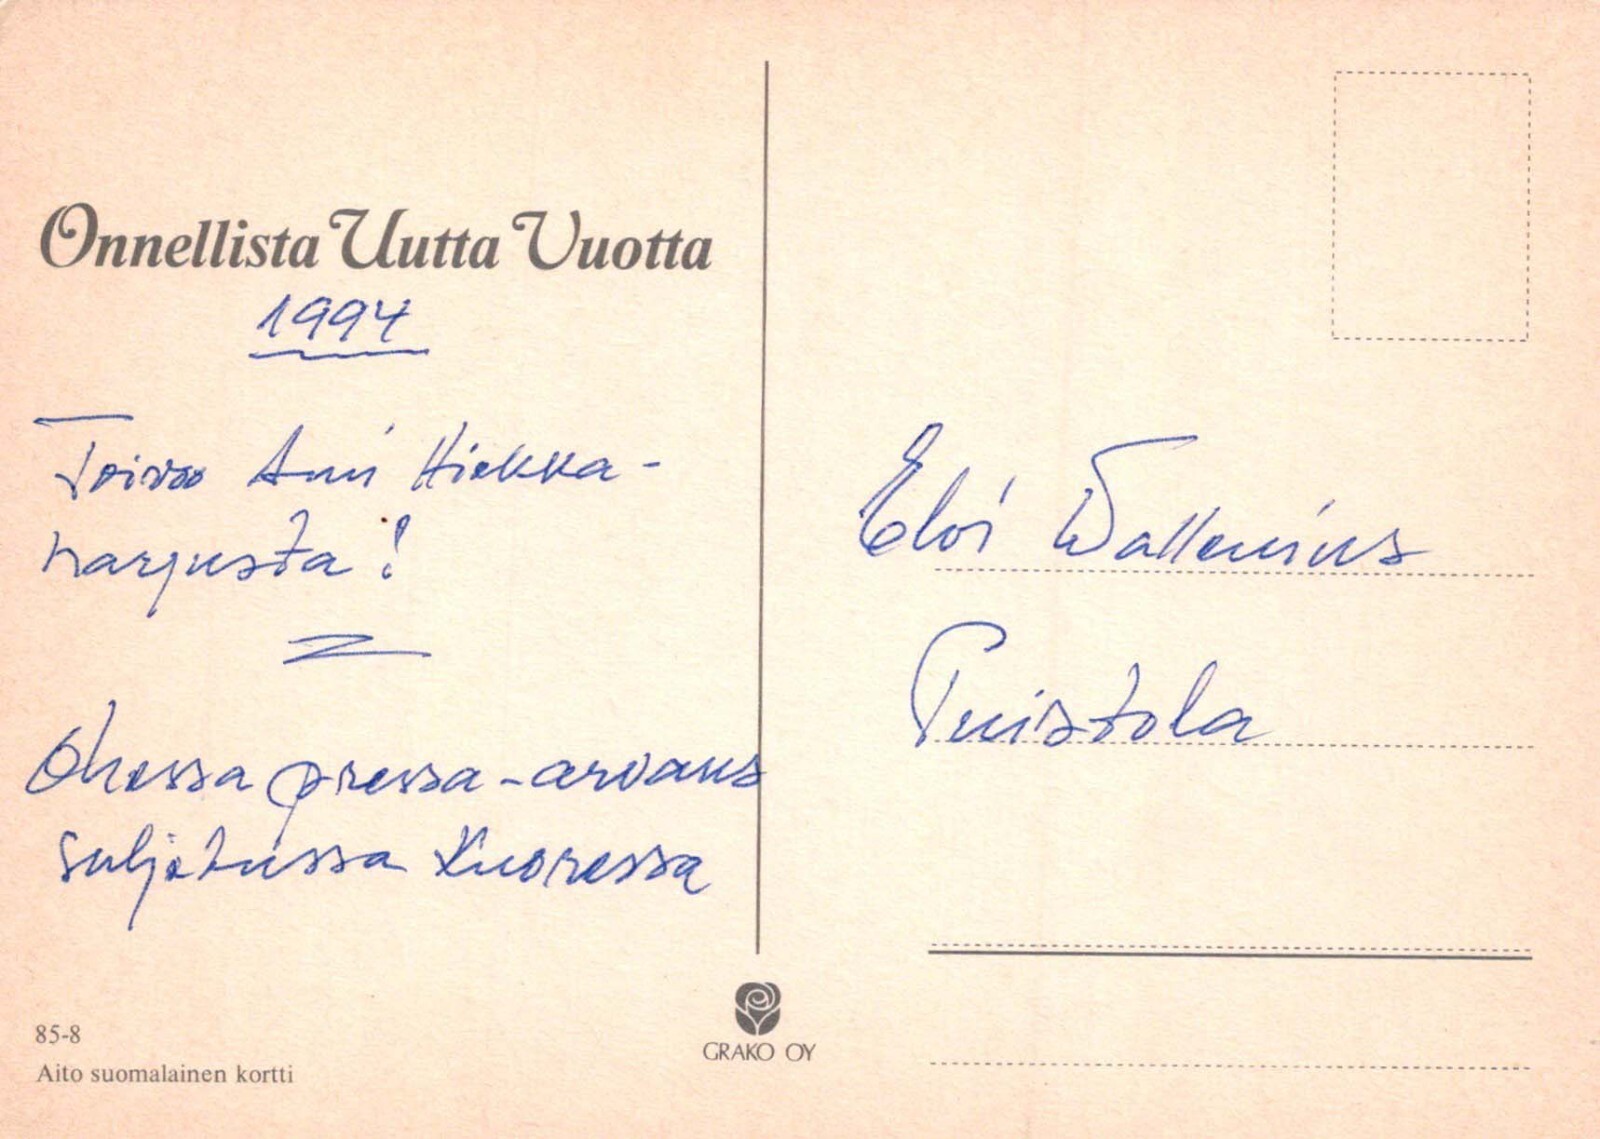 Onnellista Uutta Vuotta
1994
Toivoo Ani Hiekka-
harjusta!
Ohessa pressa-arvaus
suljetussa kuoressa
85-8
Aito suomalainen kortti
GRAKO OY
Eloi Wallenius
Puistola